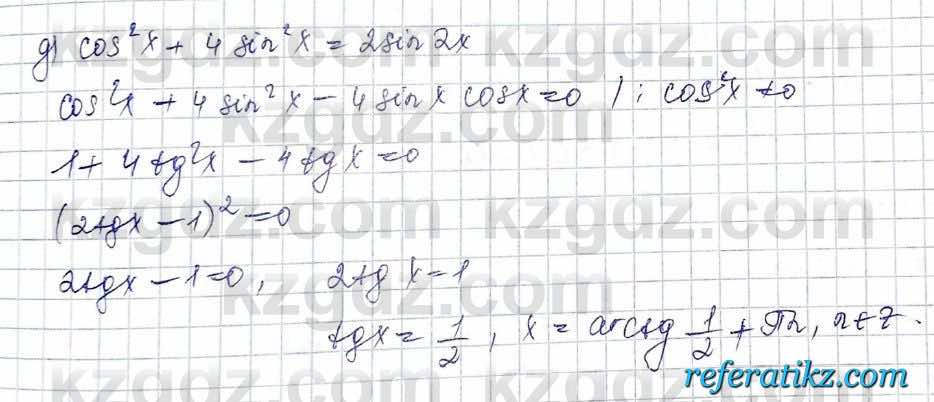 д) cos²x + 4 sin²x = 2sin2x
cos²x + 4 sin²x - 4 sinx cosx = 0 / : cos²x ≠ 0
1 + 4 tg²x - 4 tgx = 0
(2tgx - 1)² = 0
2tgx - 1 = 0, 2tgx = 1
tgx = 1/2, x = arctg 1/2 + πn, n∈Z.
kzgdz.com
referatikz.com